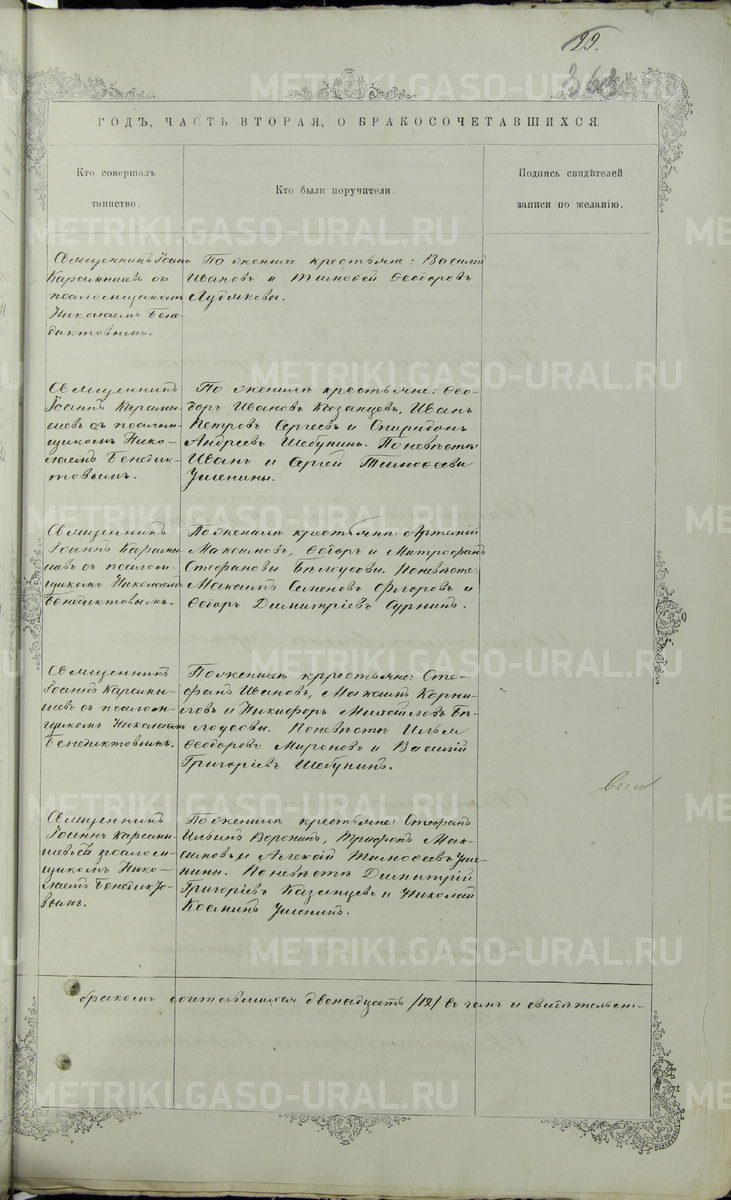 22.
363
ГОДЪ, ЧАСТЬ ВТОРАЯ, О БРАКОСОЧЕТАВШИХСЯ.
Кто совершалъ
таинство.
Кто были поручители.
Подпись свидѣтелей
записи по желанію.
Священникъ Іоаннъ
Карамышевъ съ
псаломщикомъ
Николаемъ Бене-
диктовымъ.
По женихѣ крестьяне: Василій
Ивановъ и Тимоѳей Ѳеодоровъ
Священникъ
Іоаннъ Карамы-
шевъ съ псалом-
щикомъ Нико-
лаемъ Бенедик-
товымъ.
По женихѣ крестьяне: Ѳео-
доръ Ивановъ Казанцевъ, Иванъ
Петровъ Сергѣевъ и Спиридонъ
Андреевъ Шебунинъ. По невѣстѣ:
Иванъ и Сергѣй Тимоѳеевы
Священникъ
Іоаннъ Карамы-
шевъ съ псалом-
щикомъ Николаемъ
Бенедиктовымъ.
По женихѣ крестьяне: Артемій
Максимовъ, Ѳеодоръ и Митрофанъ
Стефановы Бѣлоусовы. По невѣстѣ:
Максимъ Семеновъ Флоровъ и
Ѳеодоръ Димитріевъ Сурнинъ.
Священникъ
Іоаннъ Карамы-
шевъ съ псалом-
щикомъ Николаемъ
Бенедиктовымъ.
По женихѣ крестьяне: Сте-
фанъ Ивановъ, Максимъ Корни-
ловъ и Никифоръ Михайловъ Бѣ-
лоусовы. По невѣстѣ Илья
Ѳеодоровъ Мироновъ и Василій
Григоріевъ Шебунинъ.
Священникъ
Іоаннъ Карамы-
шевъ съ псалом-
щикомъ Нико-
лаемъ Бенедикто-
вымъ.
По женихѣ крестьяне: Стефанъ
Ильинъ Воронинъ, Трифонъ Мак-
симовъ и Алексѣй Тимоѳеевъ
По невѣстѣ Димитрій
Григоріевъ Казанцевъ и Николай
Косминъ
бракомъ сочетавшихся двенадцать /12/ въ чемъ и свидѣтельст-
METRIKI.GASO-URAL.RU